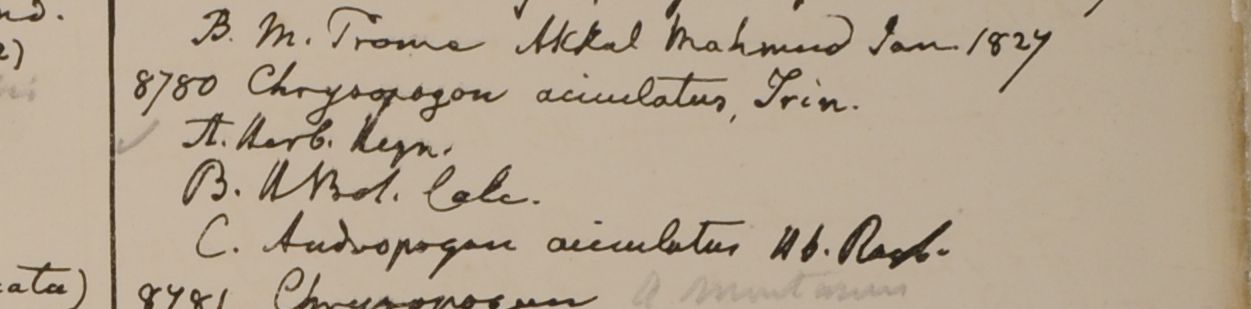 nd.
B. M. Prome Akkal Mahmud Jan. 1827
8780 Chrysopogon aciculatus, Trin.
A. Herb. Heyn.
B. H Bot. Calc.
C. Andropogon aciculatus Hb. Roxb.
cata) 8781 Chrysopogon A montanus